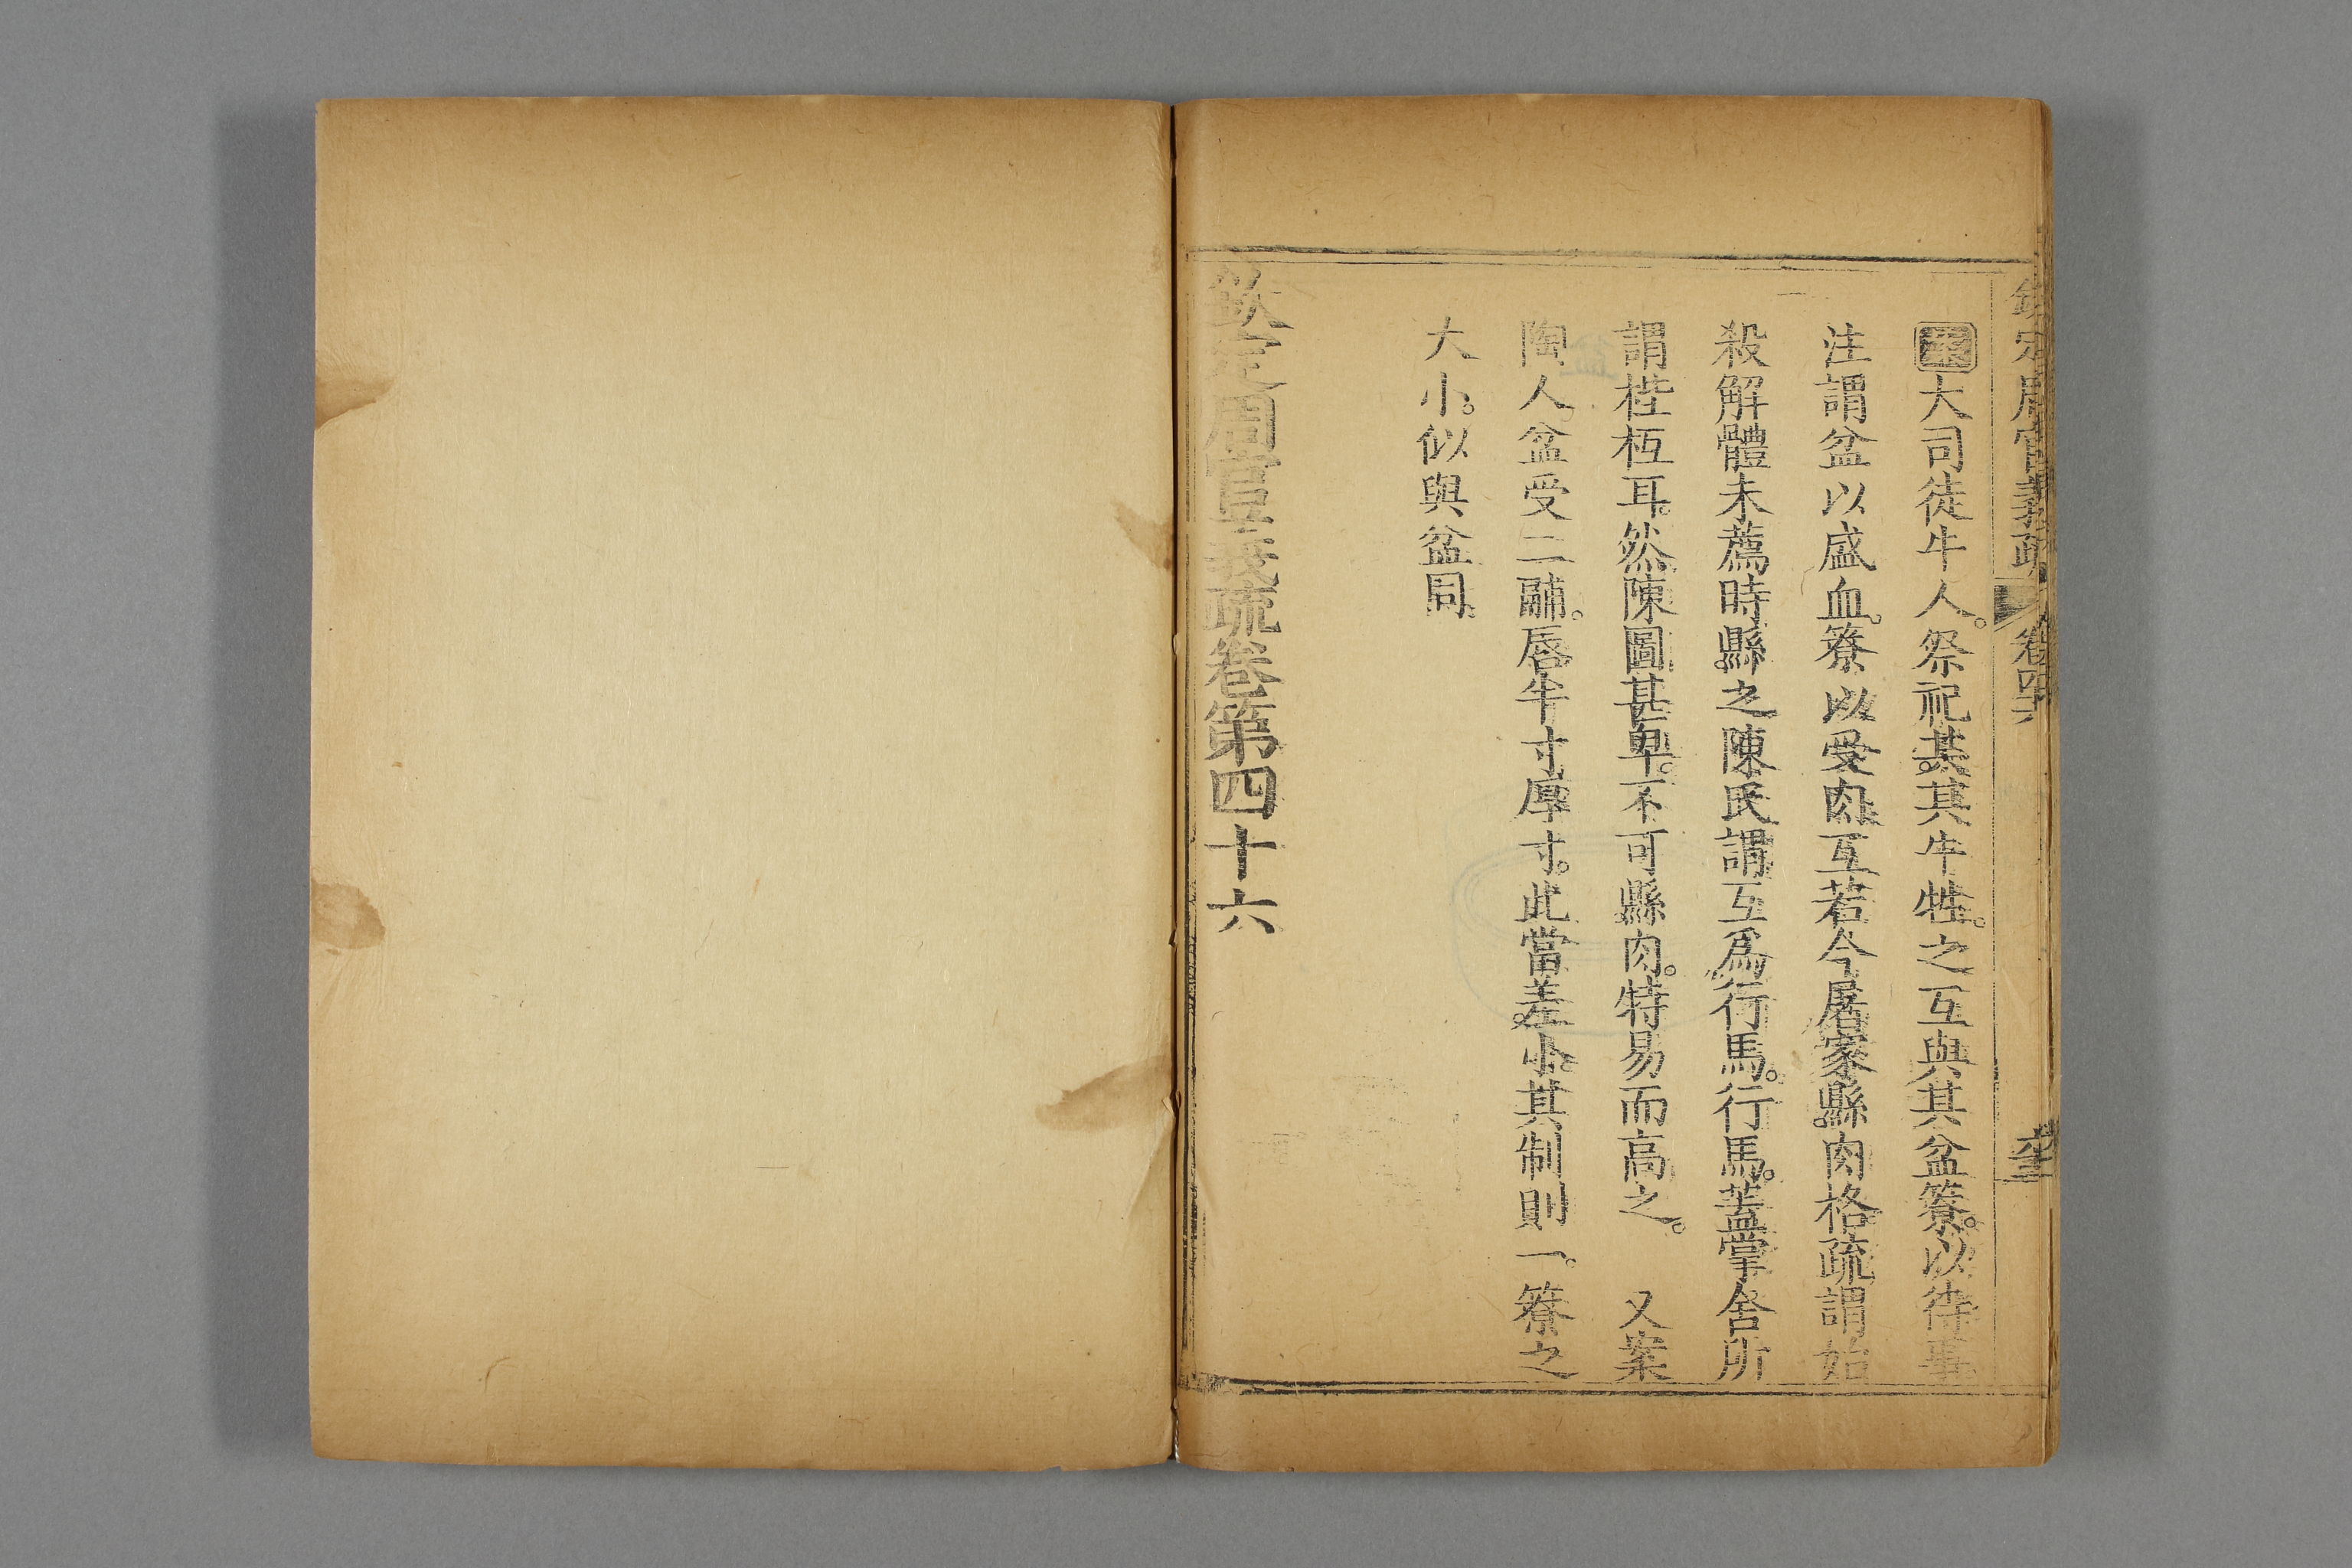 欽定周官義疏 卷四十六
案大司徒牛人。祭祀共其牛牲。之互與其盆簝。以待事
注謂盆以盛血。簝以受肉互若今屠家縣肉格疏謂始
殺解體未薦時縣之陳氏謂互為行馬。行馬。蓋掌舍所
謂梐枑耳。然陳圖甚卑。不可縣肉。特易而高之。 又案
陶人。盆受二鬴。唇半寸厚寸。此當差小。其制則一。簝之
大小。似與盆同。
欽定周官義疏卷第四十六